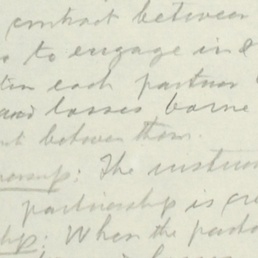 contract between
to engage in a
each partner
and losses borne
between them.
nership: The instrum
partnership is cre
hip: When the part